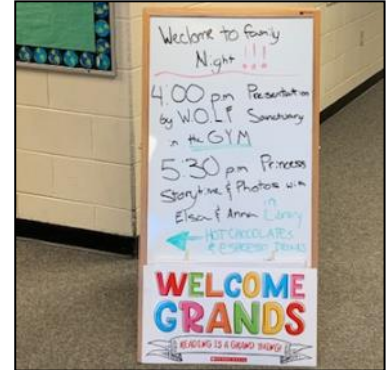 Welcome to family
Night !!!
4:00 pm Presentation
by W.O.L.F Sanctuary
in the GYM
5:30 pm Princess
Storytime & Photos with
Elsa & Anna in Library
HOT CHOCOLATES
& ESPRESSO DRINKS
WELCOME
GRANDS
READING IS A GRAND THING!
SCHOLASTIC